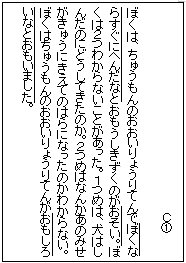 C①
ぼくは、ちゅうもんのおおいりょうりてんでぼくな
らすぐにへんだなとおもうしきずくのがおそい。ぼ
くは2つわからないことがあった。1つめは、犬はし
んだのにどうしてきたのか。2つめはなんかあのみせ
がきゅうにきえてのはらになったのかわからない。
ぼくはちゅうもんのおおいりょうりてんがおもしろ
いなとおもいました。